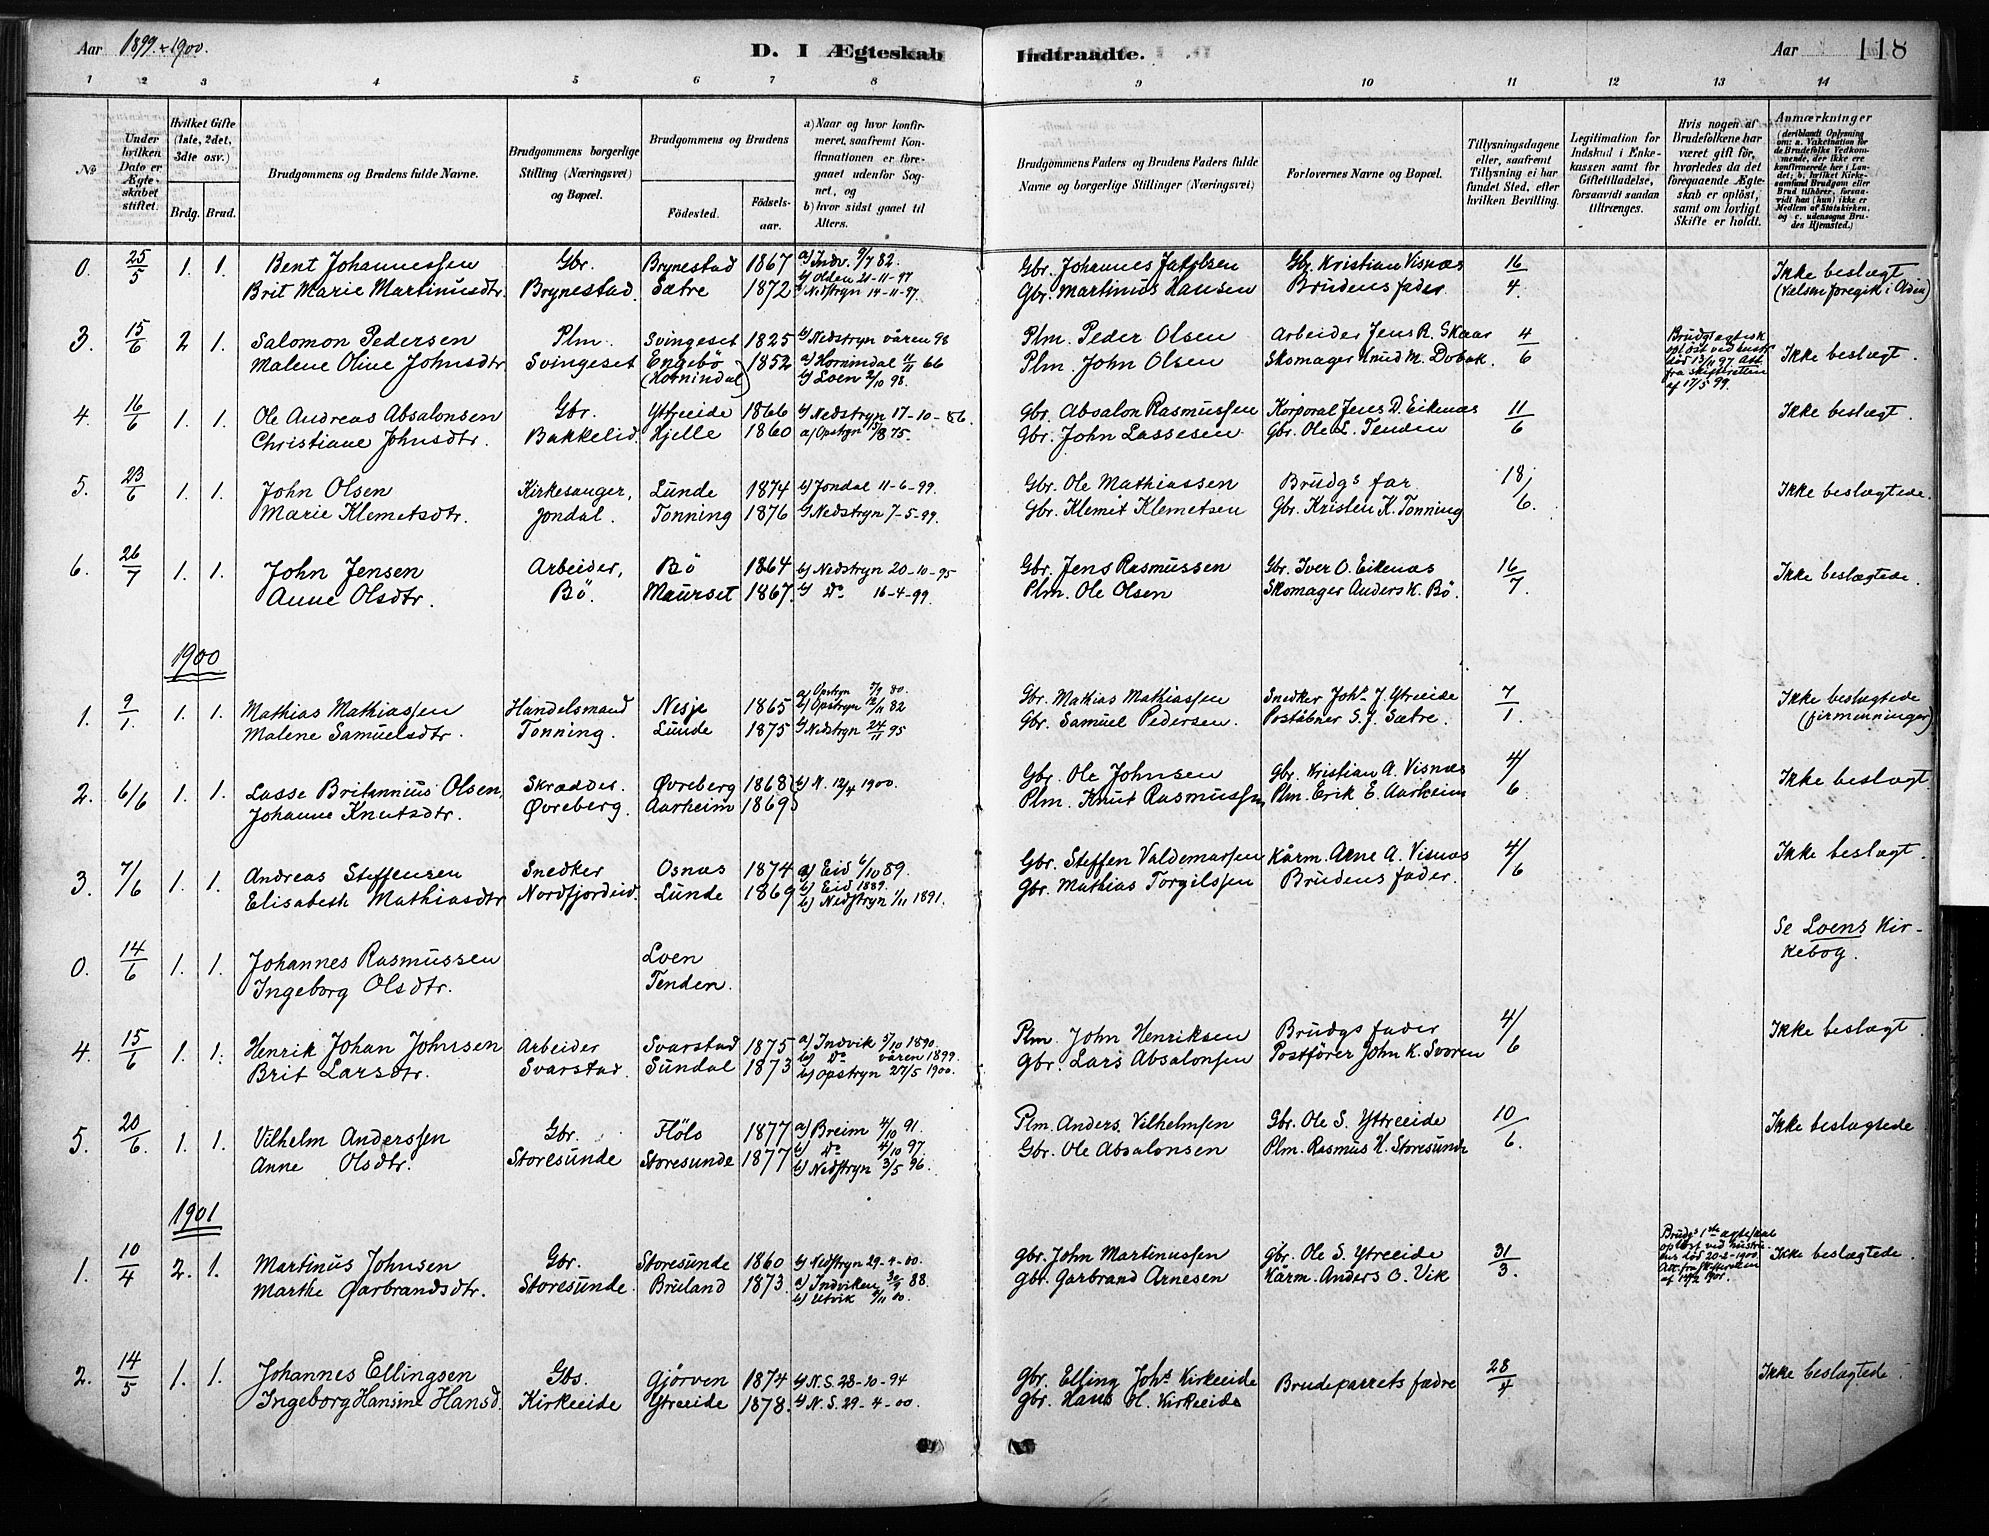 Aar 1899 & 1900.
D. I Ægteskab Indtraadte.
Aar 118
1 2 3 4 5 6 7 8 9 10 11 12 13 14
№
Under hvilken Dato er Ægteskabet stiftet.
Hvilket Gifte (1ste, 2det, 3die osv.)
Brdg. Brud.
Brudgommens og Brudens fulde Navne.
Brudgommens borgerlige Stilling (Næringsvei) og Bopæl.
Brudgommens og Brudens
Födested. Födselsaar.
a) Naar og hvor konfirmeret, saafremt Konfirmationen er foregaaet udenfor Sognet, og
b) hvor sidst gaaet til Alters.
Brudgommens Faders og Brudens Faders fulde Navne og borgerlige Stillinger (Næringsvei)
Forlovernes Navne og Bopæl.
Tillysningsdagene eller, saafremt Tillysning ei har fundet Sted, efter hvilken Bevilling.
Legitimation for Indskud i Enkekassen samt for Giftetilladelse, forsaavidt saadan tiltrænges.
Hvis nogen af Brudefolkene har været gift för, hvorledes da det foregaaende Ægteskab er oplöst, samt om lovligt Skifte er holdt.
Anmærkninger
(deriblandt Oplysning om: a. Vakcination for de Brudefolks Vedkommende, der ikke ere konfirmerede her i Landet; b, hvilket Kirkesamfund Brudgom eller Brud tilhörer, forsaavidt han (hun) ikke er Medlem af Statskirken, og c. udensogns Brudes Hjemsted.)
0. 25/5 1. 1. Bent Johannessen Gbr. Brynestad 1867 a) Indv. 9/7 82. b) Olden 21-11-97 Gbr. Johannes Gbr. Kristian Visnæs 16/4. Ikke beslægt
Brit Marie Martinusdtr. Brynestad. Sætre 1872 Nedstryn 14-11-97. Gbr. Martinus Hansen Brudens fader (Vielsen foregik i)
3. 15/6 2 1. Salomon Pedersen Plm. Svingeset 1825 b) Nedstryn våren 98 Plm. Peder Olsen Arbeider Jens R. Skaar 4/6 Ikke beslægt.
Malene Oline Johnsdtr. Svingeset Engebö (Hornindal) 1852 a) Hornindal 11/11 66 b) Loen 2/10 98. Plm. John Olsen Skomager Knud M. Dvbak.
13/11 97 fra skifteretten af 17/5 99.
4. 16/6 1. 1. Ole Andreas Absalonsen Gbr. Ytreeide 1866 b) Nedstryn 17-10-86. Gbr. Absalon Rasmussen Korporal Jens D. Eikenæs 11/6 Ikke beslægt.
Christiane Johnsdtr. Bakkelid Hjelle 1860 a) Opstryn 15/8 75. Gbr. John Lassesen Gbr. Ole L. Tenden
5. 23/6 1. 1. John Olsen Kirkesanger, Lunde 1874 b) Jondal 11-6-99. Gbr. Ole Mathiassen Brudgs far 18/6. Ikke beslægtede.
Marie Klemetsdtr. Jondal. Tonning 1876 b) Nedstryn 7-5-99. Gbr. Klemet Klemetsen Gbr. Kristen K. Tonning
6. 26/7 1. 1. John Jensen Arbeider, Bö 1864 b) Nedstryn 20-10-95 Gbr. Jens Rasmussen Gbr. Iver O. Eikenæs 16/7. Ikke beslægtede.
Anne Olsdtr. Bö. Maurset 1867. b) Do 16-4-99. Plm. Ole Olsen Skomager Anders K. Bö.
1900
1. 9/1. 1. 1. Mathias Mathiassen Handelsmand Nesje 1865 a) Opstryn 5/9 80. b) Opstryn 12/11 82 Gbr. Mathias Mathiassen Snedker Johs. J. Ytreeide 7/1. Ikke beslægtede
Malene Samuelsdtr. Tonning. Lunde 1875 b) Nedstryn 24/11 95 Gbr. Samuel Pedersen. Poståbner S. J. Sætre. (firmenninger)
2. 6/6 1. 1. Lasse Britannius Olsen, Skrædder. Øvreberg 1868 b) N. 12/4 1900. Gbr. Ole Johnsen Gbr. Kristian A. Visnæs 4/6 Ikke beslægt
Johanne Knutsdtr. Øvreberg. Aarheim 1869 Plm. Knut Rasmussen Plm. Erik E. Aarheim
3. 7/6 1. 1. Andreas Steffensen Snedker Osnæs 1874 a) Eid 6/10 89. b) Eid 1889. Gbr. Steffen Valdemarsen Kårm. Arne A. Visnæs 4/6 Ikke beslægt.
Elisabeth Mathiasdtr Nordfjordeid. Lunde 1869 b) Nedstryn 1/11 1891. Gbr. Mathias Torgilssen Brudens fader.
0. 14/6 1. 1. Johannes Rasmussen Loen Se Loens Kirkebog.
Ingeborg Olsdtr. Tenden.
4. 15/6 1. 1. Henrik Johan Johnsen Arbeider Svarstad 1875 a) Indvik 5/10 1890. b) Do våren 1899. Plm. John Henriksen Brudgs fader 4/6 Ikke beslægt.
Brit Larsdtr. Svarstad. Sundal 1873 b) Opstryn 27/5 1900. Gbr. Lars Absalonsen Postförer John K. Svoren
5. 20/6. 1. 1. Vilhelm Anderssen Gbr. Flölo 1877 a) Breim 4/10 91. b) Do 4/10 97. Plm. Anders Vilhelmsen Gbr. Ole S. Ytreeide 10/6. Ikke beslægtede
Anne Olsdtr. Storesunde Storesunde 1877 b) Nedstryn 3/5 96. Gbr. Ole Absalonsen Plm. Rasmus H. Storesunde
1901
1. 10/4 2. 1. Martinus Johnsen Gbr. Storesunde 1860 b) Nedstryn 29-4-00. Gbr. John Martinussen Gbr. Ole S. Ytreeide 31/3. Ikke beslægtede.
Marthe Garbrandsdtr. Storesunde. Bruland 1873. a) Indviken 30/9 88. b) Utvik 4/11 00. Gbr. Garbrand Arnesen Kårm. Anders O. Vik
Brudgs 1ste ægteskab oplöst ved hustruens död 20-2-1900. Att. fra skifteretten
2. 14/5 1. 1. Johannes Ellingsen Gbs. Gjörven 1874 b) N.S. 28-10-94 Gbr. Elling Johs. Kirkeeide Brudeparrets fædre 28/4 Ikke beslægtede
Ingeborg Hansine Hansd. Kirkeeide Ytreeide 1878. b) N.S. 29-4-00. Gbr. Hans H. Kirkeeide